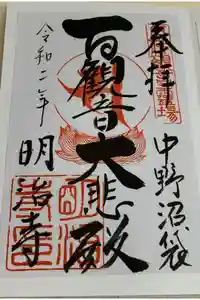 奉拝
中野沼袋
百観音大悲殿
令和二年
明治寺